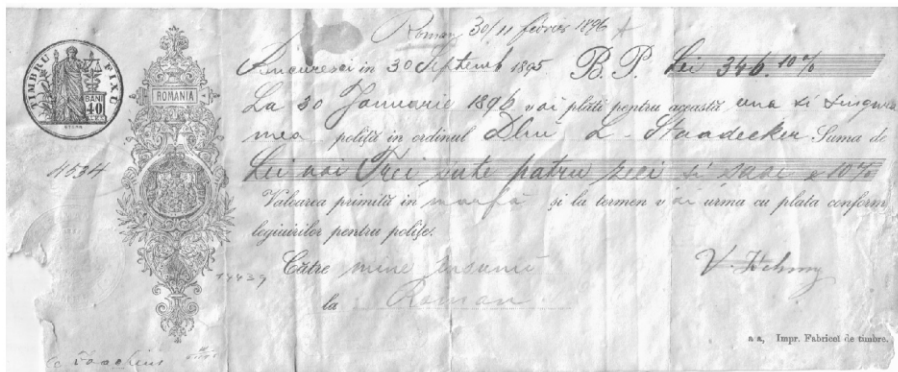 Roman 30/11 fevrier 1896
TIMBRU FIXU
BANI
40
ROMANIA
Bucuresci in 30 Septemb 1895 B. P. Lei 346.10%
La 30 Januarie 1896 voi plăti pentru această una si singura
mea poliță in ordinul Dlui L. Staadecker Suma de
Lei noi Trei sute patru zeci si sase 10%
Valoarea primită in marfă și la termen voi urma cu plata conform
legiuirilor pentru polițe.
Către mine însumi
la Roman.
a a, Impr. Fabricei de timbre.